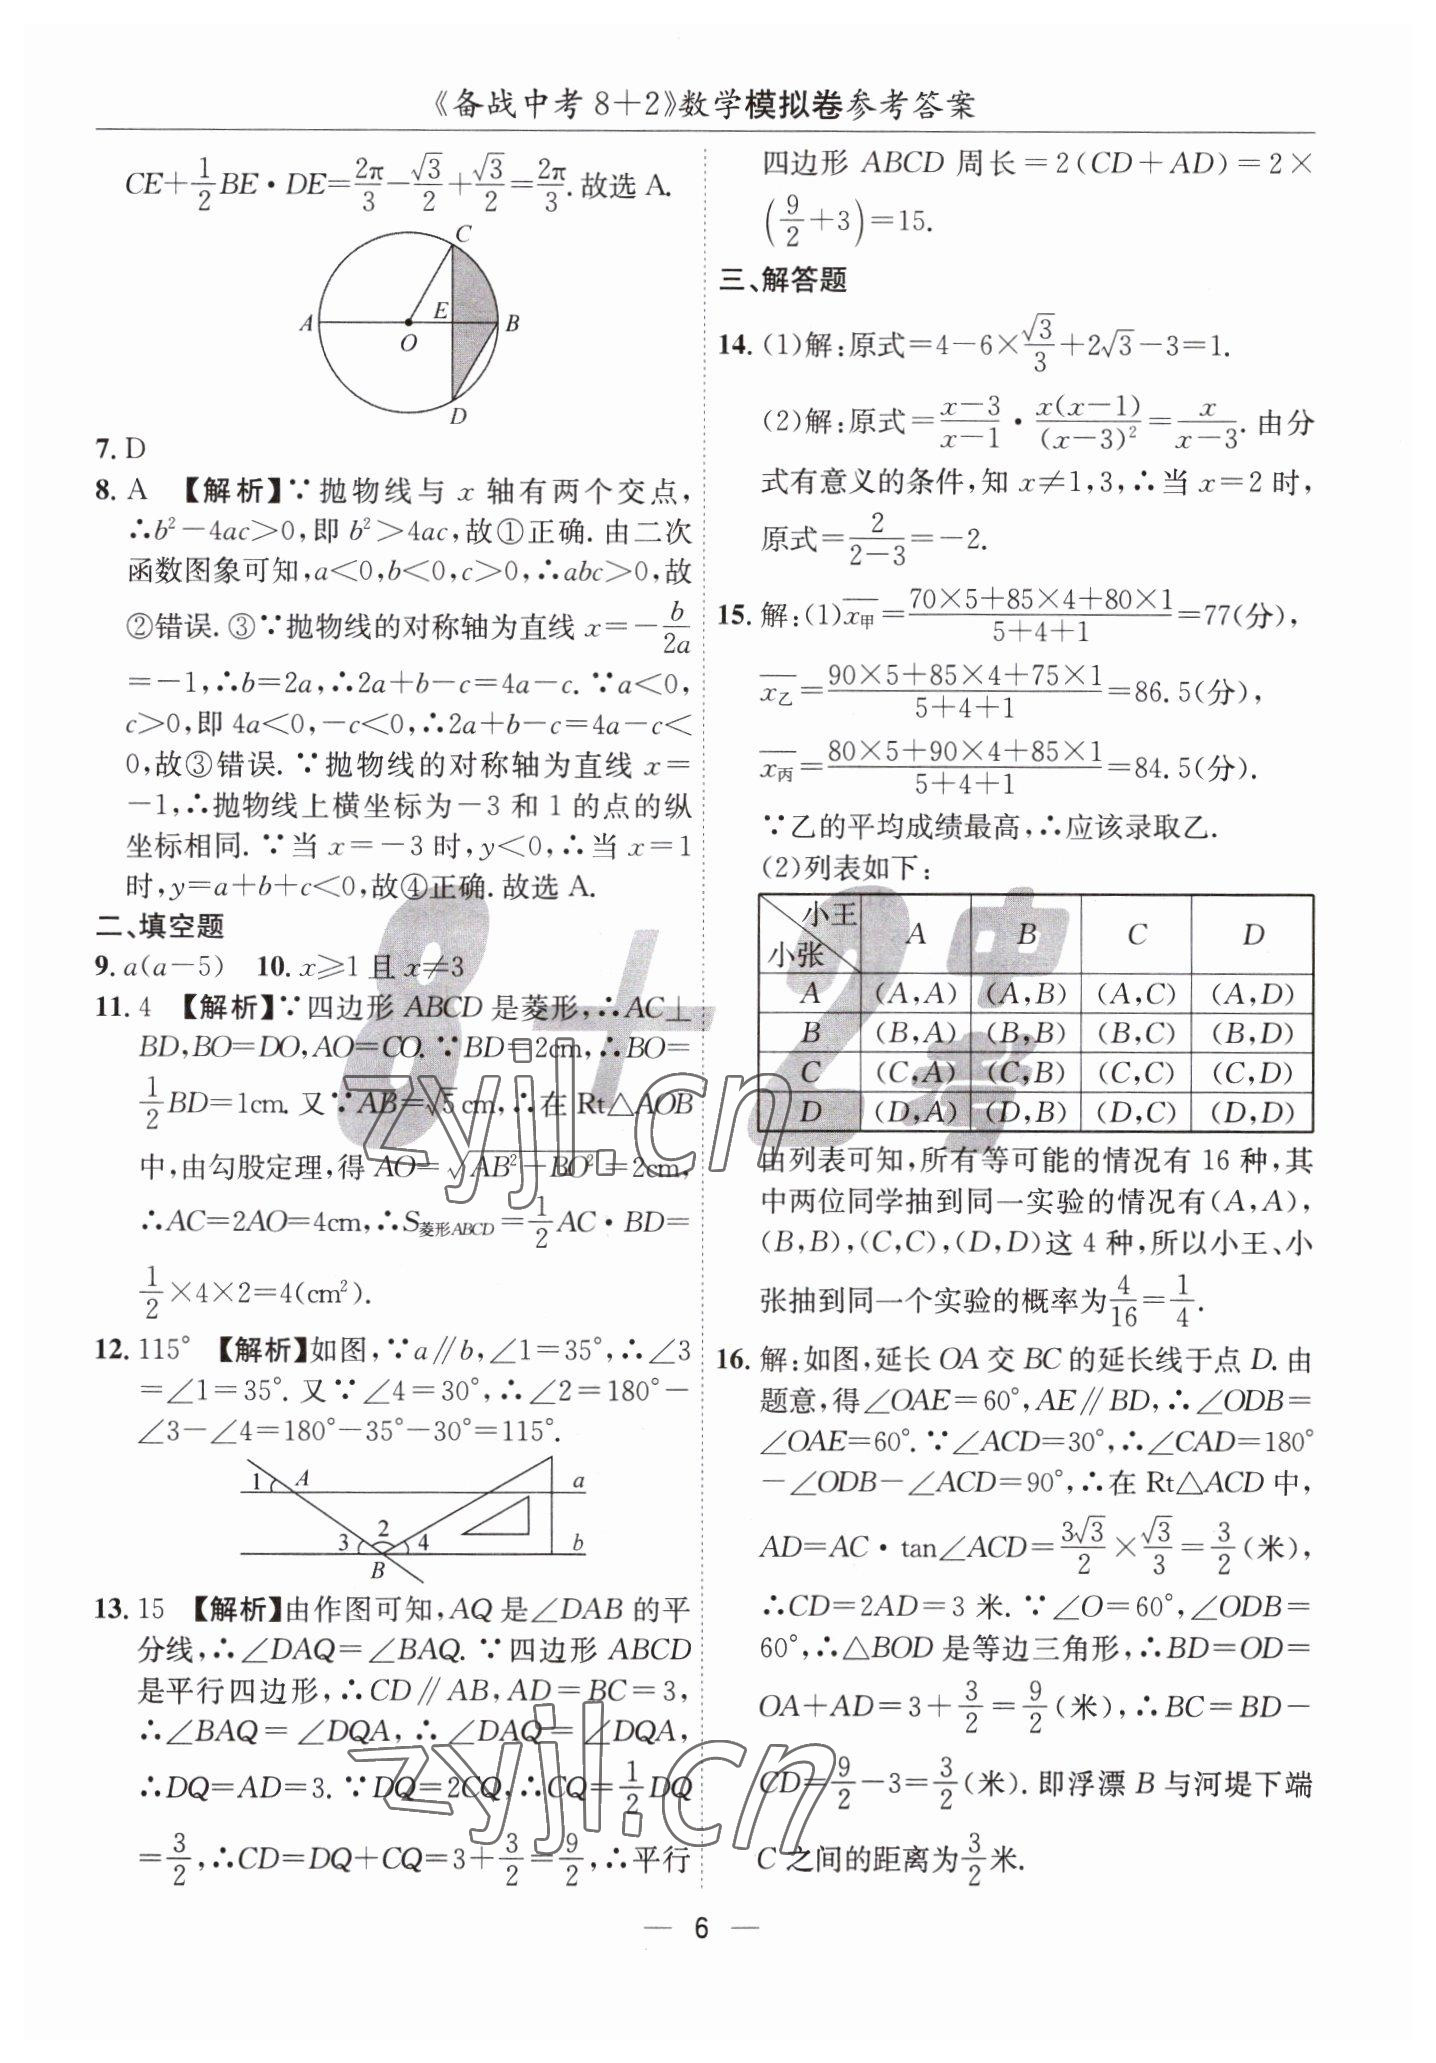 《备战中考8+2》数学模拟卷参考答案
CE+1/2BE·DE=2π/3-√3/2+√3/2=2π/3.故选A.
C
A E B
O
D
7. D
8. A 【解析】∵抛物线与x轴有两个交点,
∴b²-4ac>0,即b²>4ac,故①正确.由二次
函数图象可知,a<0,b<0,c>0,∴abc>0,故
②错误.③∵抛物线的对称轴为直线x=-b/2a
=-1,∴b=2a,∴2a+b-c=4a-c.∵a<0,
c>0,即4a<0,-c<0,∴2a+b-c=4a-c<
0,故③错误.∵抛物线的对称轴为直线x=
-1,∴抛物线上横坐标为-3和1的点的纵
坐标相同.∵当x=-3时,y<0,∴当x=1
时,y=a+b+c<0,故④正确.故选A.
二、填空题
9. a(a-5) 10. x≥1且x≠3
11. 4 【解析】∵四边形ABCD是菱形,∴AC⊥
BD,BO=DO,AO=CO.∵BD=2cm,∴BO=
1/2BD=1cm.又∵AB=√5cm,∴在Rt△AOB
中,由勾股定理,得AO=√(AB²-BO²)=2cm,
∴AC=2AO=4cm,∴S菱形ABCD=1/2AC·BD=
1/2×4×2=4(cm²).
12. 115° 【解析】如图,∵a∥b,∠1=35°,∴∠3
=∠1=35°.又∵∠4=30°,∴∠2=180°-
∠3-∠4=180°-35°-30°=115°.
1 A a
3 2 4 b
B
13. 15 【解析】由作图可知,AQ是∠DAB的平
分线,∴∠DAQ=∠BAQ.∵四边形ABCD
是平行四边形,∴CD∥AB,AD=BC=3,
∴∠BAQ=∠DQA,∴∠DAQ=∠DQA,
∴DQ=AD=3.∵DQ=2CQ,∴CQ=1/2DQ
=3/2,∴CD=DQ+CQ=3+3/2=9/2,∴平行
四边形ABCD周长=2(CD+AD)=2×
(9/2+3)=15.
三、解答题
14. (1)解:原式=4-6×√3/3+2√3-3=1.
(2)解:原式=(x-3)/(x-1)·x(x-1)/(x-3)²=x/(x-3).由分
式有意义的条件,知x≠1,3,∴当x=2时,
原式=2/(2-3)=-2.
15. 解:(1)x甲=(70×5+85×4+80×1)/(5+4+1)=77(分),
x乙=(90×5+85×4+75×1)/(5+4+1)=86.5(分),
x丙=(80×5+90×4+85×1)/(5+4+1)=84.5(分).
∵乙的平均成绩最高,∴应该录取乙.
(2)列表如下:
小王 小张 A B C D
A (A,A) (A,B) (A,C) (A,D)
B (B,A) (B,B) (B,C) (B,D)
C (C,A) (C,B) (C,C) (C,D)
D (D,A) (D,B) (D,C) (D,D)
由列表可知,所有等可能的情况有16种,其
中两位同学抽到同一实验的情况有(A,A),
(B,B),(C,C),(D,D)这4种,所以小王、小
张抽到同一个实验的概率为4/16=1/4.
16. 解:如图,延长OA交BC的延长线于点D.由
题意,得∠OAE=60°,AE∥BD,∴∠ODB=
∠OAE=60°.∵∠ACD=30°,∴∠CAD=180°
-∠ODB-∠ACD=90°,∴在Rt△ACD中,
AD=AC·tan∠ACD=3√3/2×√3/3=3/2(米),
∴CD=2AD=3米.∵∠O=60°,∠ODB=
60°,∴△BOD是等边三角形,∴BD=OD=
OA+AD=3+3/2=9/2(米),∴BC=BD-
CD=9/2-3=3/2(米).即浮漂B与河堤下端
C之间的距离为3/2米.
8+2中考
zyjl.cn
zyjl.cn
— 6 —